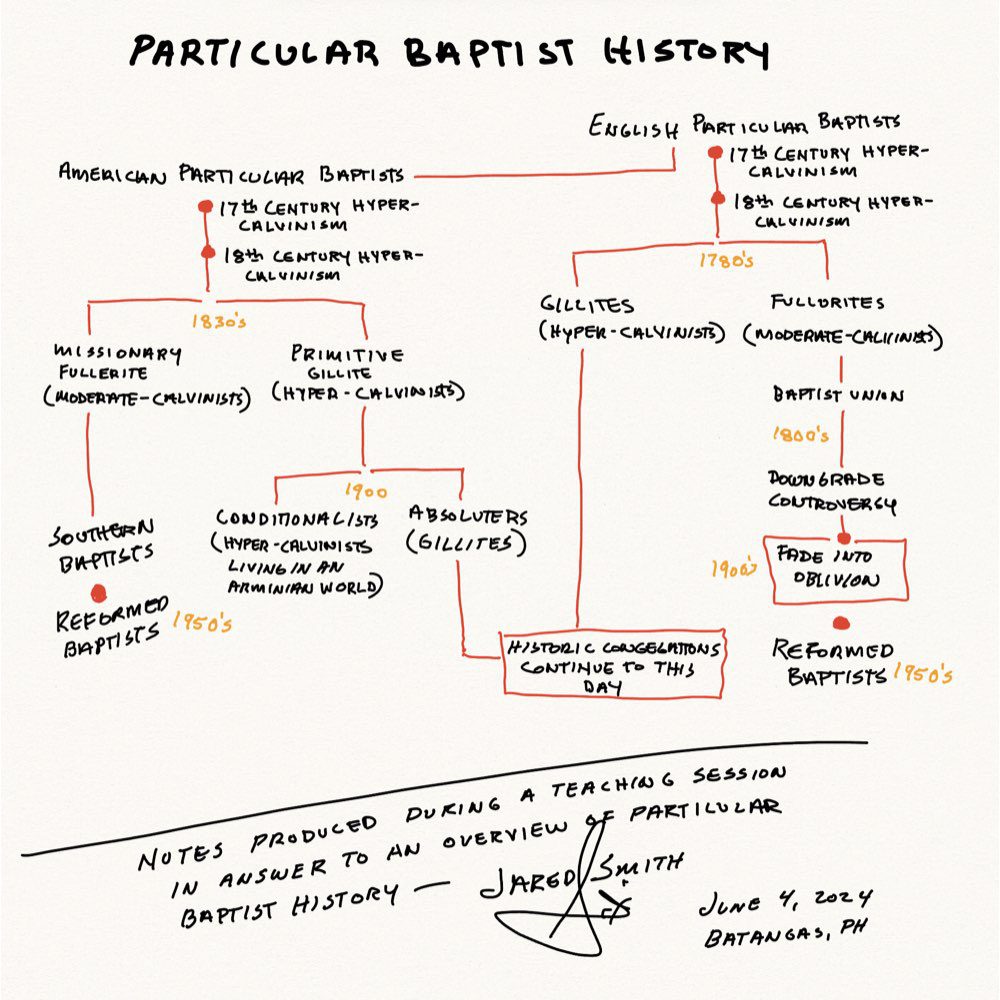 PARTICULAR BAPTIST HISTORY
ENGLISH PARTICULAR BAPTISTS
17th CENTURY HYPER-
CALVINISM
18th CENTURY HYPER-
CALVINISM
AMERICAN PARTICULAR BAPTISTS
17th CENTURY HYPER-
CALVINISM
18th CENTURY HYPER-
CALVINISM
1780's
GILLITES
(HYPER-CALVINISTS)
FULLORITES
(MODERATE-CALVINISTS)
BAPTIST UNION
1800's
DOWNGRADE
CONTROVERGY
1900's
FADE INTO
OBLIVION
REFORMED
BAPTISTS 1950's
1830's
MISSIONARY
FULLERITE
(MODERATE-CALVINISTS)
PRIMITIVE
GILLITE
(HYPER-CALVINISTS)
1900
CONDITIONALISTS
(HYPER-CALVINISTS
LIVING IN AN
ARMINIAN WORLD)
ABSOLUTERS
(GILLITES)
SOUTHERN
BAPTISTS
REFORMED
BAPTISTS 1950's
HISTORIC CONGEGATIONS
CONTINUE TO THIS
DAY
NOTES PRODUCED DURING A TEACHING SESSION
IN ANSWER TO AN OVERVIEW OF PARTICULAR
BAPTIST HISTORY — JARED SMITH
JUNE 4, 2024
BATANGAS, PH